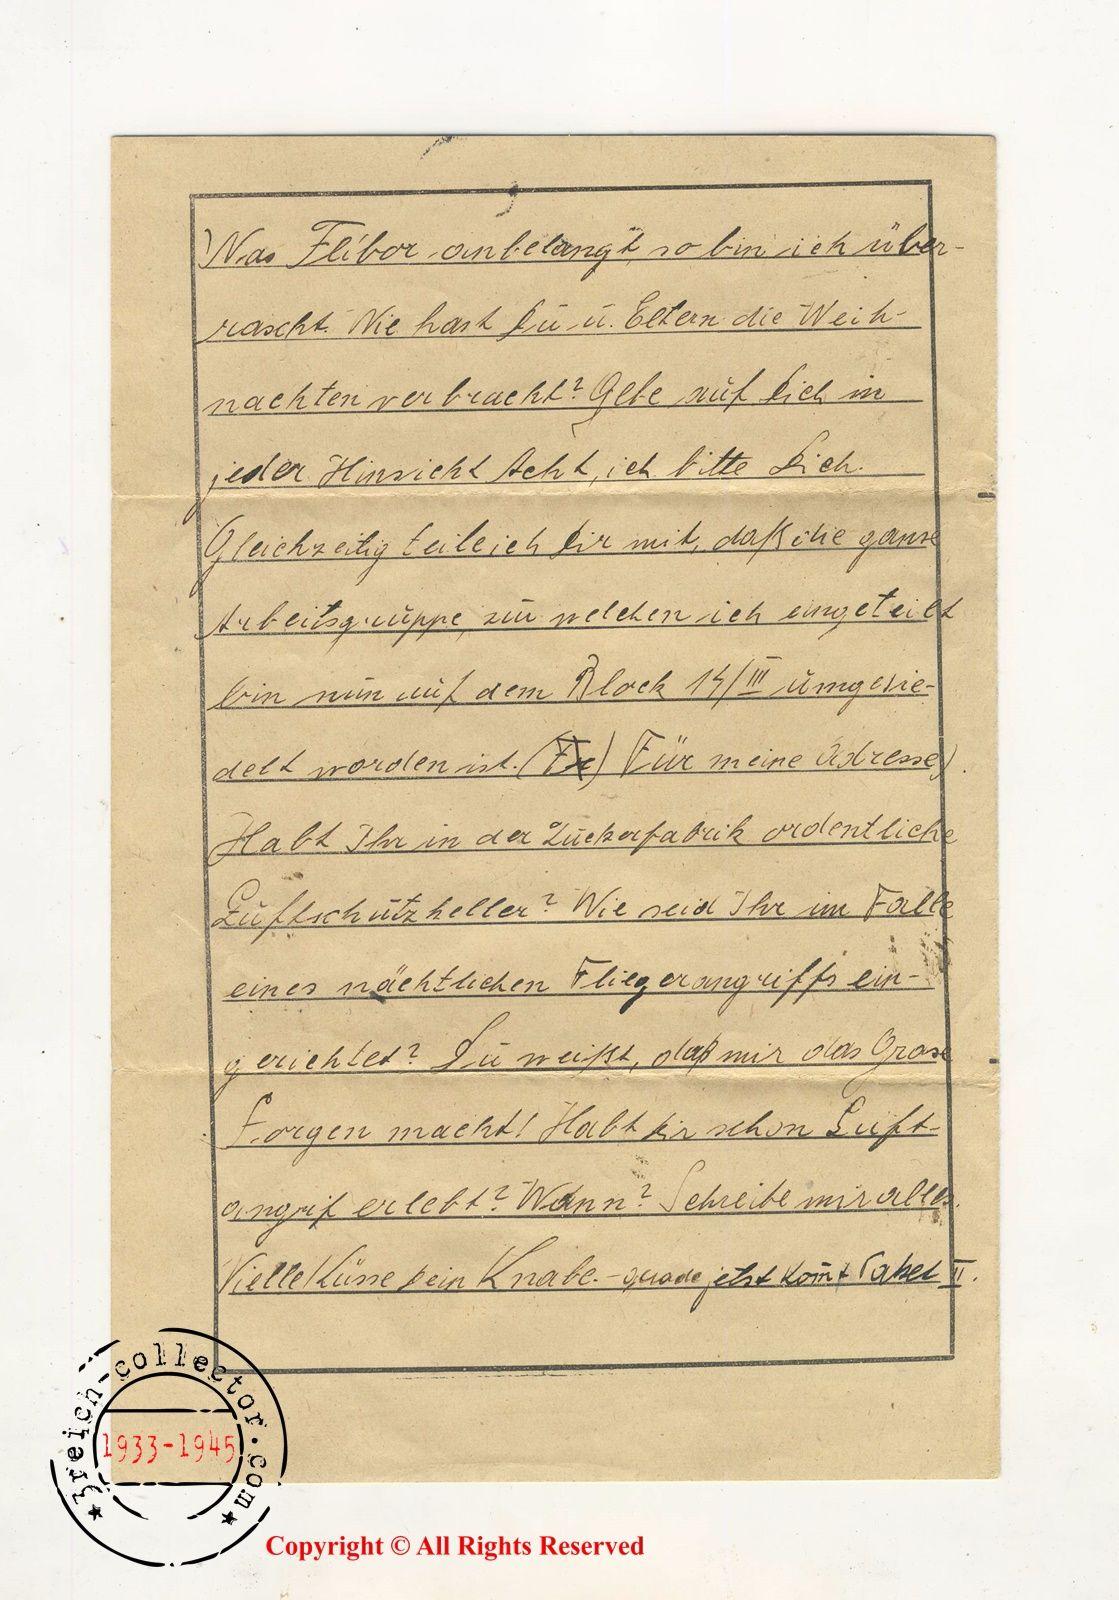 Was Flibor anbelangt, so bin ich über-
rascht. Wie hast Du u. Eltern die Weih-
nachten verbracht? Gebe auf Dich in
jeder Hinsicht Acht, ich bitte Dich.
Gleichzeitig teile ich Dir mit, daß die ganse
Arbeitsgruppe, zu welchen ich eingeteilt
bin nun auf dem Block 14/III umgesie-
delt worden ist. ( ) Für meine Adresse)
Habt Ihr in der Zuckerfabrik ordentliche
Luftschutzkeller? Wie seid Ihr im Falle
eines nächtlichen Fliegerangriffs ein-
gerichtet? Du weißt, daß mir das Grose
Sorgen macht! Habt Ihr schon Luft-
angrif erlebt? Wann? Schreibe mir alles.
Vielle Küsse Dein Knabe. - grade jetst komt Paket II.
3reich-collector.com
1933-1945
Copyright © All Rights Reserved